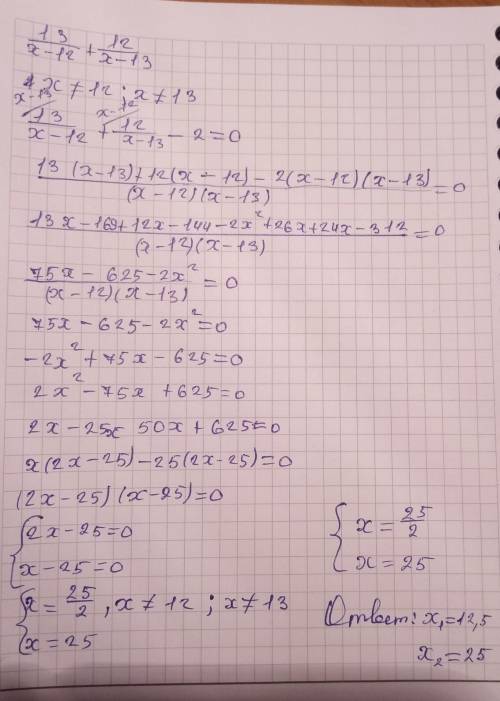 13/(x-12) + 12/(x-13)
x ≠ 12; x ≠ 13
x-13 x-12
13/(x-12) + 12/(x-13) - 2 = 0
(13(x-13)+12(x-12)-2(x-12)(x-13))/((x-12)(x-13)) = 0
(13x-169+12x-144-2x²+26x+24x-312)/((x-12)(x-13)) = 0
(75x-625-2x²)/((x-12)(x-13)) = 0
75x-625-2x²=0
-2x²+75x-625=0
2x²-75x+625=0
2x-25x 50x+625=0
x(2x-25)-25(2x-25)=0
(2x-25)(x-25)=0
{2x-25=0
x-25=0
{x=25/2, x≠12; x≠13
x=25
{x=25/2
x=25
Ответ: x₁=12,5
x₂=25